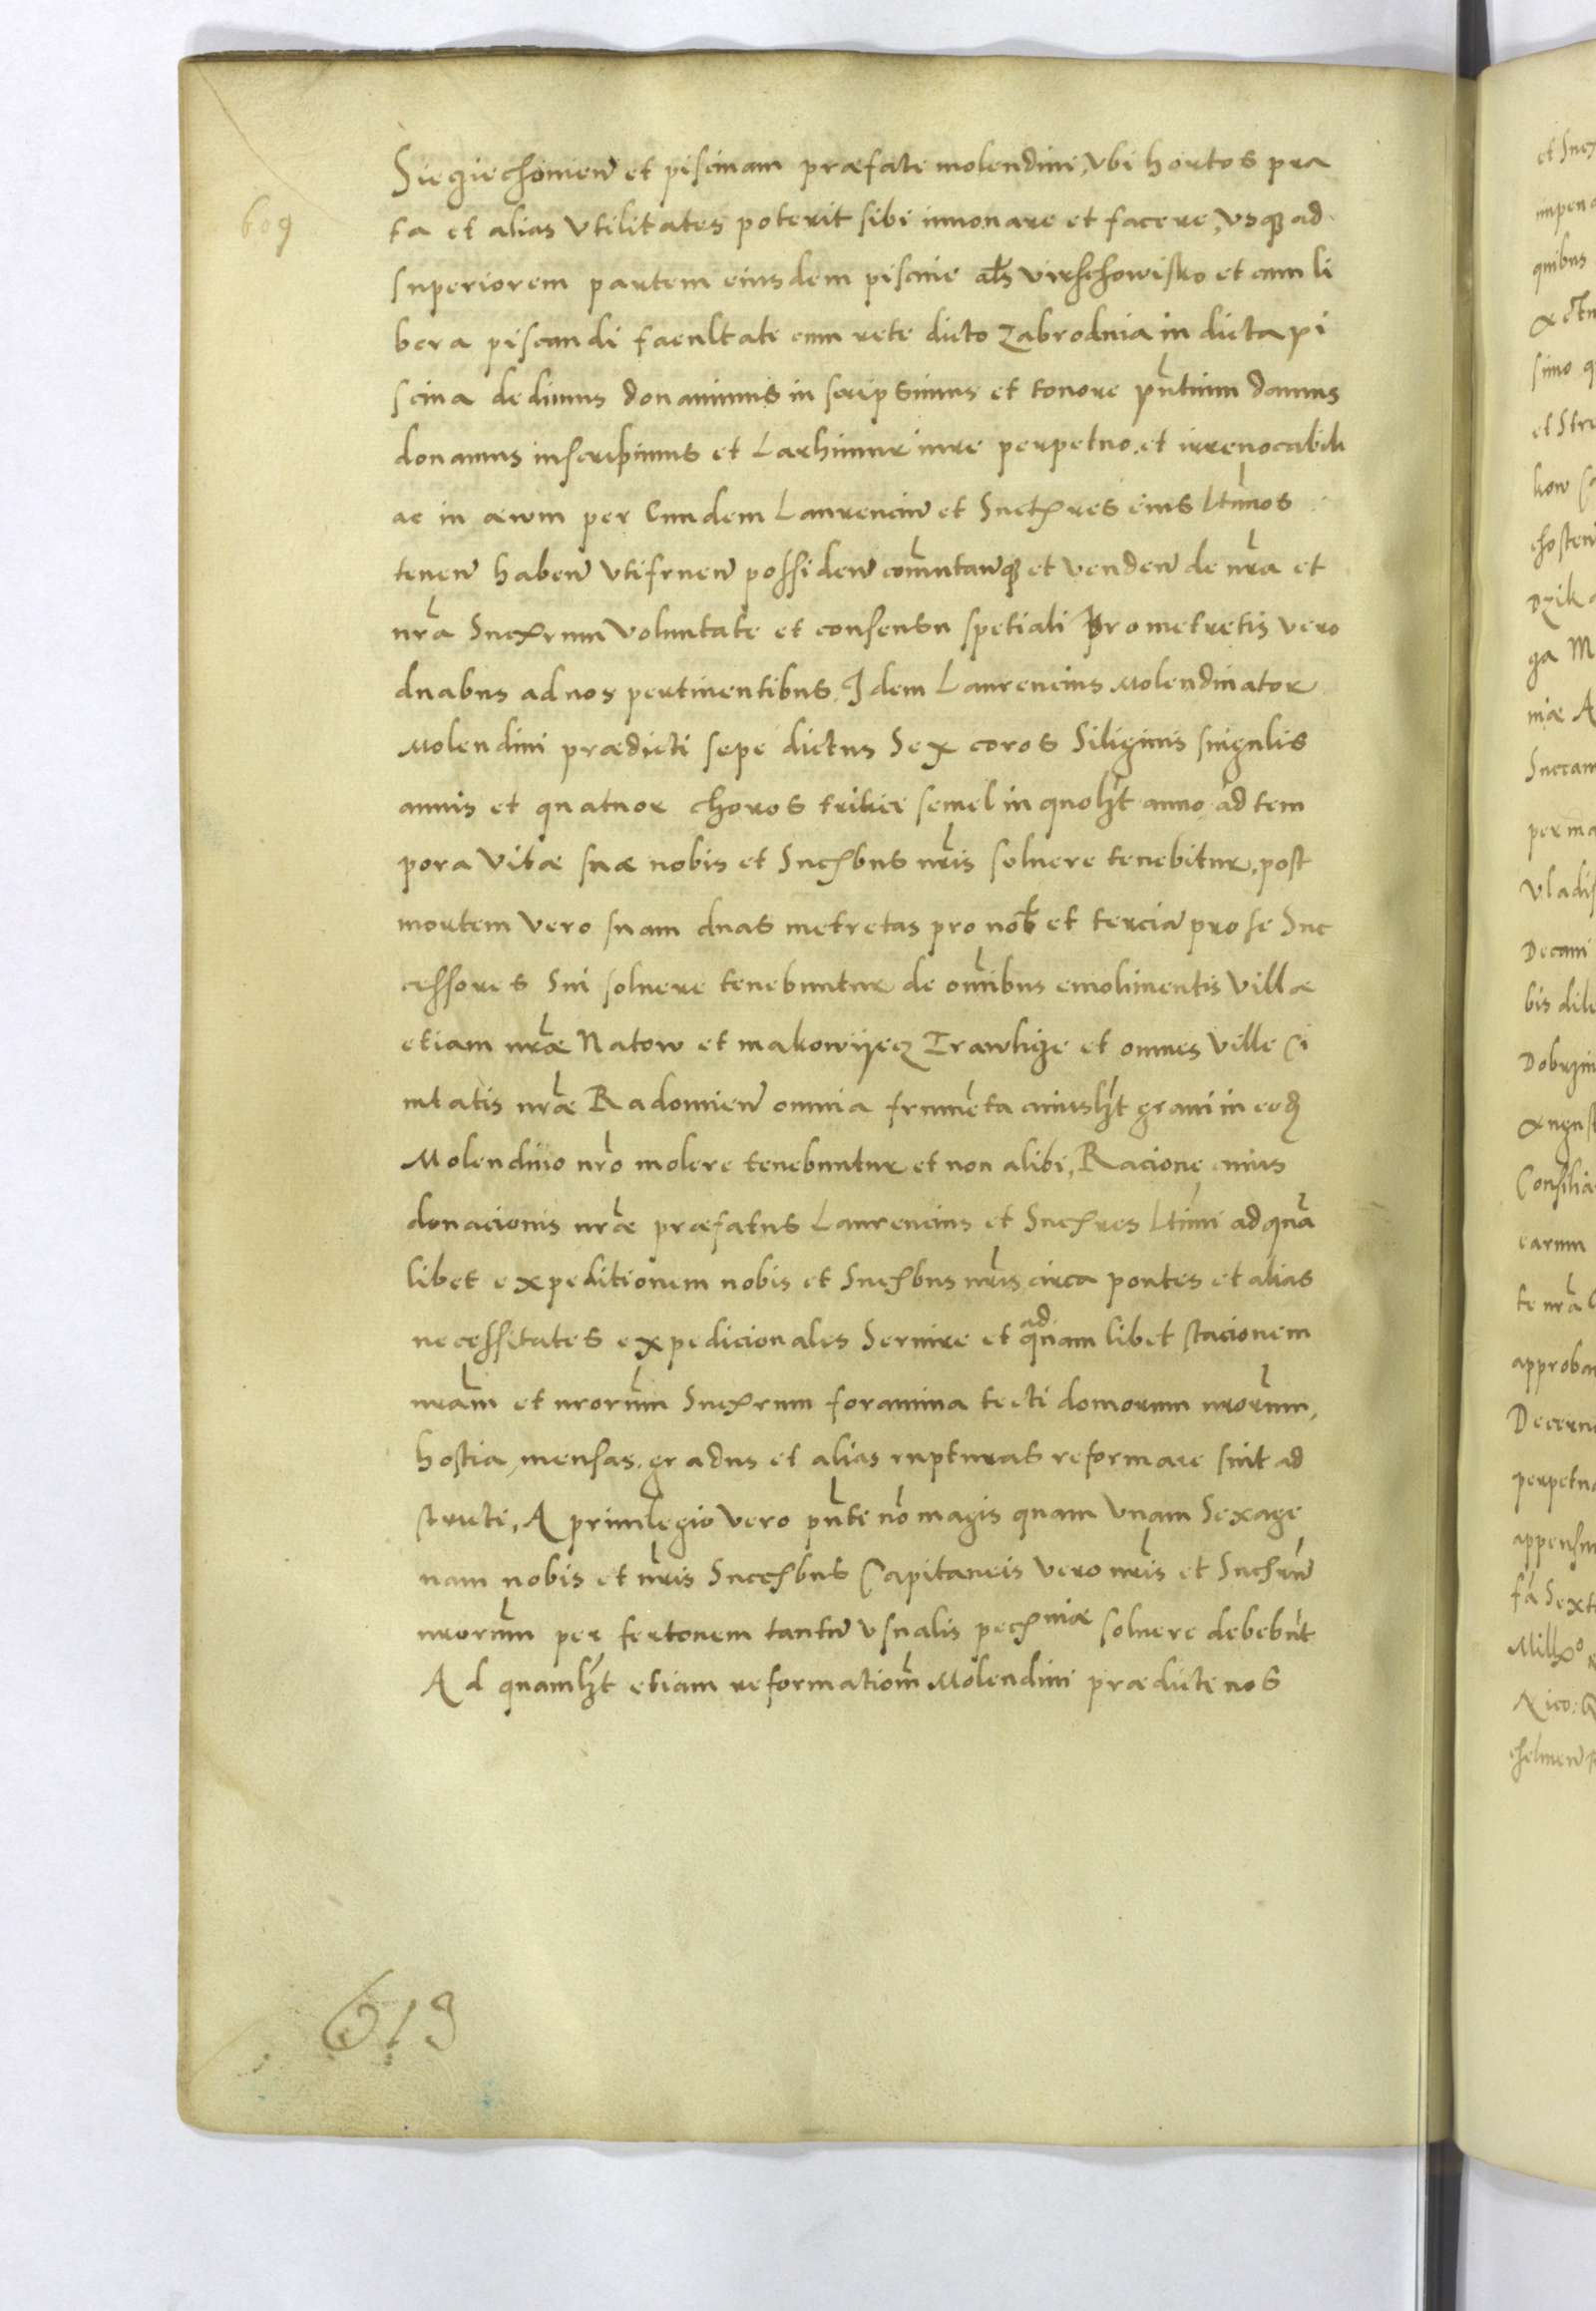 609
Siegiechovien̄ et piscinam præfate molendini, vbi hortos pra
ta et alias vtilitates poterit sibi innouare et facere, vsq₃ ad
superiorem partem eiusdem piscine als̄ virschowisko et cum li
bera piscandi facultate cum rete dicto zabrodnia in dicta pi
scina dedimus donauimus inscripsimus et tenore pn̄tium damus
donamus inscripimus et Larhimur iure perpetuo et irreuocabili
ac in æwm per Eundem Laurenciū et Succ̄res eius Lt̄imos
tenen̄ haben̄ vtifruen̄ possiden̄ com̄utan̄q₃ et venden̄ de nr̄a et
nr̄a Succ̄rum voluntate et consensu spetiali Pro metretis vero
duabus ad nos pertinentibus. Idem Laurencius Molendinator
Molendini prædicti sepe dictus Sex coros Siliginis singulis
annis et quatuor choros tritici semel in quolꝫt anno ad tem
pora vitæ suæ nobis et Succ̄bus nr̄is soluere tenebitur, post
mortem vero suam duas metretas pro nob̄ et terciā pro se Suc
cessores Sui soluere tenebuntur de om̄ibus emolimentis villæ
etiam nr̄æ Natow et makowijecz Trawlige et omnes ville Ci
uitatis nr̄æ Radomien̄ omnia frumēta cuiuslꝫt grani in eodꝫ
Molendino nr̄o molere tenebuntur et non alibi, Racione cuius
donacionis nr̄æ præfatus Laurencius et Succ̄res Lt̄imi ad quā
libet expeditionem nobis et Succ̄bus nr̄is circa pontes et alias
necessitates expedicionales Seruire et ad quam libet stacionem
nr̄am et nr̄orum Succ̄rum foramina tecti domorum nr̄orum,
hostia, mensas, gradus et alias rupturas reformare sint ad
stricti, A priuilegio vero pn̄te nō magis quam vnam Sexage
nam nobis et nr̄is Succ̄bus Capitaneis vero nr̄is et Succ̄rū
nr̄orum per fertonem tantū vsualis pec̄niæ soluere debebūt
Ad quamlꝫt etiam reformationē Molendini prædicti nos
613